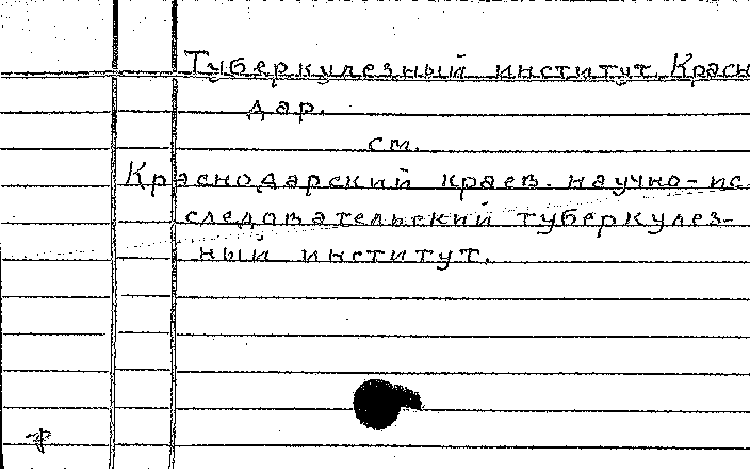 Туберкулезный институт. Красн
дар.
см.
Краснодарский краев. научно-ис
следовательский туберкулез-
ный институт.